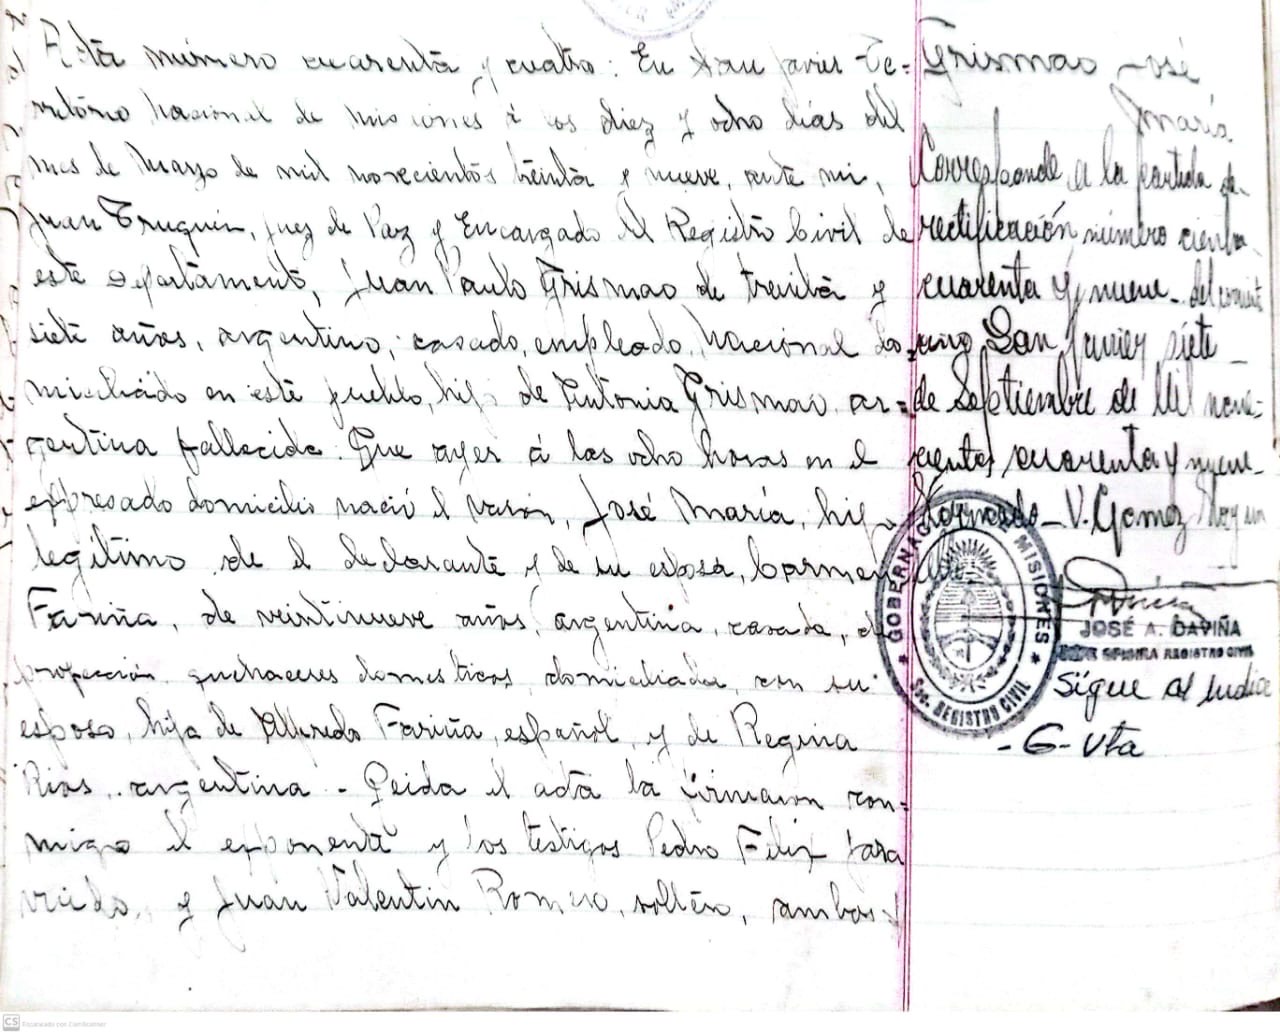 Acta número cuarenta y cuatro: En San Javier Te-
rritorio Nacional de Misiones á los diez y ocho días del
mes de Mayo de mil novecientos treinta y nueve, ante mi,
Juan Truquin, Juez de Paz y Encargado del Registro Civil de
este Departamento, Juan Paulo Grismao de treinta y
siete años, argentino, casado, empleado Nacional do
miciliado en este pueblo, hijo de Antonia Grismao, ar-
gentina fallecida: Que ayer á las ocho horas en el
expresado domicilio nació el varón, José María, hijo
legítimo de el declarante y de su esposa, Carmen
Fariña, de veintinueve años, argentina, casada, de
profección quehaceres domesticos, domiciliada, con su
esposo, hija de Alfredo Fariña, español, y de Regina
Rios, argentina. - Leida el acta la firmaron con-
migo el exponente y los testigos Pedro Felix Jara
viudo, y Juan Valentin Romero, soltero, ambos
Grismao José
María
Corresponde a la partida de
rectificación número ciento
cuarenta y nueve - del corriente
año San Javier siete
de Septiembre de Mil nove-
cientos cuarenta y nueve
V. Gomez
GOBERNAC MISIONES
REGISTRO CIVIL
JOSÉ A. DAVIÑA
REGISTRO CIVIL
Sigue al Indice
- 6 - vta
CS Escaneado con CamScanner